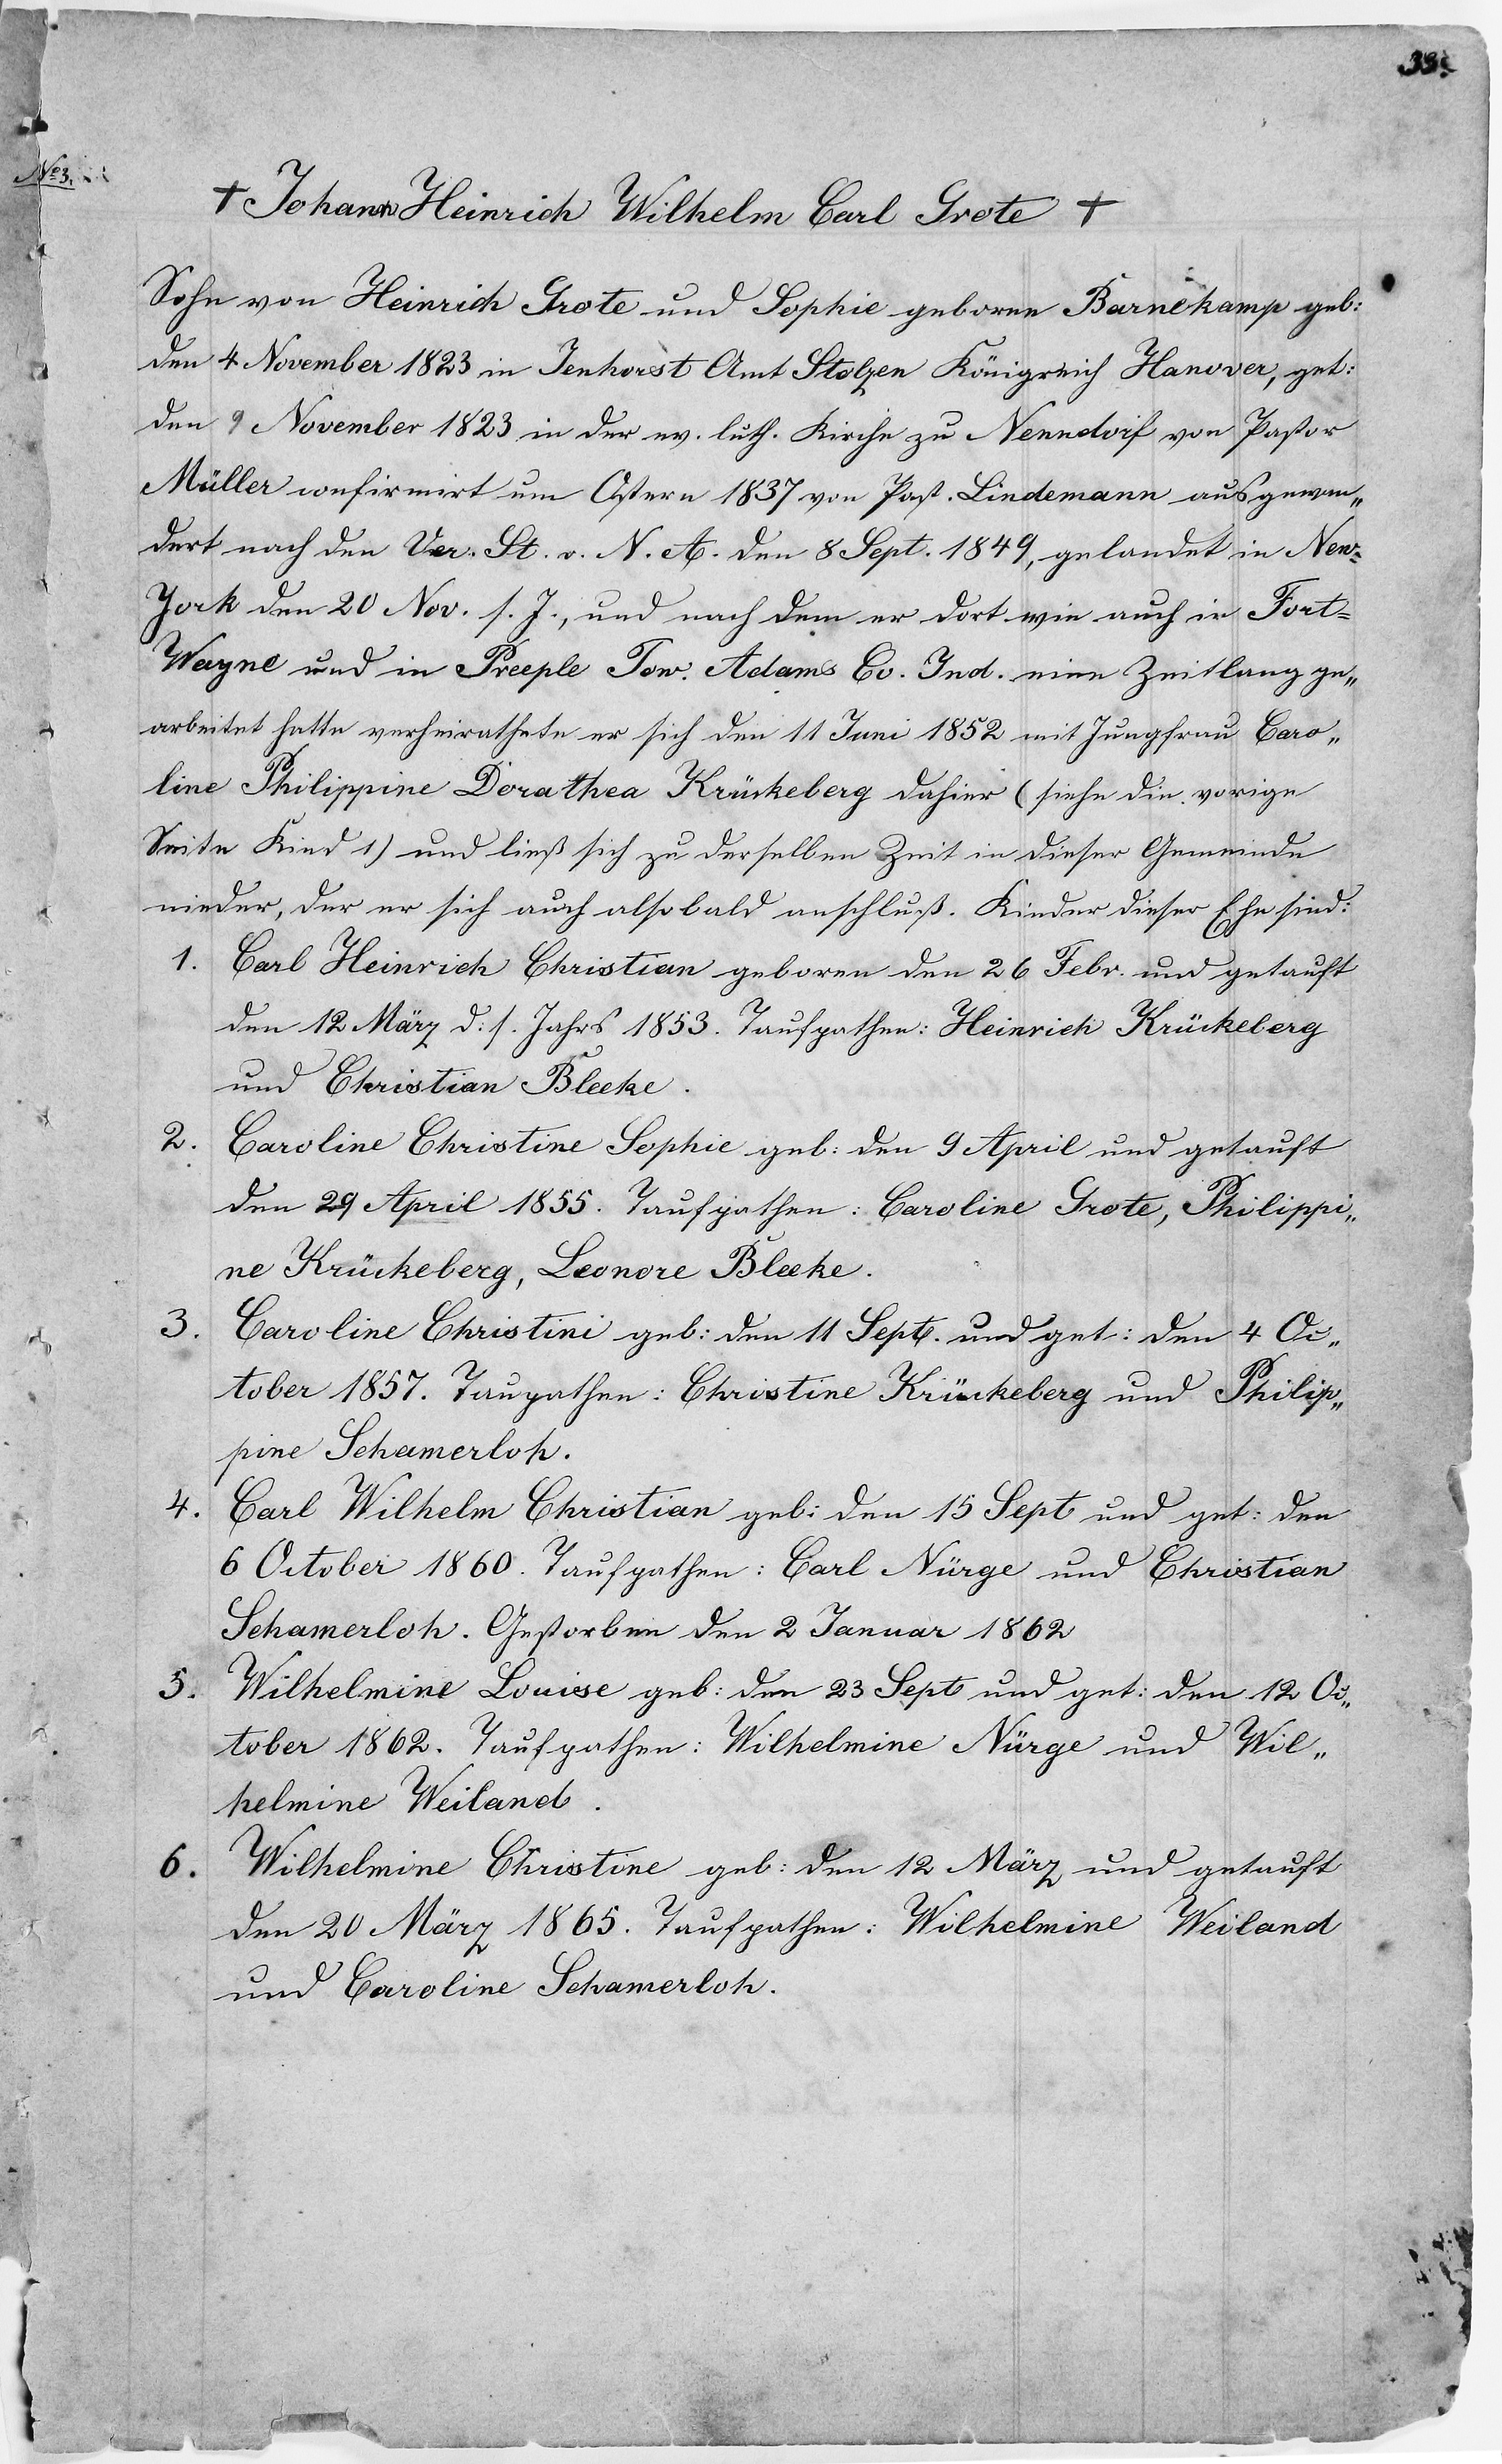 33.
No 3.
† Johann Heinrich Wilhelm Carl Grote †
Sohn von Heinrich Grote und Sophie geborne Barnekamp geb:
den 4 November 1823 in Jenhorst Amt Stolzen Königreich Hanover, get:
den 9 November 1823 in der ev. luth. Kirche zu Nenndorf von Pastor
Müller confirmirt um Ostern 1837 von Past. Lindemann ausgewan„
dert nach den Ver. St. v. N. A. den 8 Sept. 1849, gelandet in New=
York den 20 Nov. s. J., und nach dem er dort wie auch in Fort=
Wayne und in Preeple Tow. Adams Co. Ind. eine Zeitlang ge„
arbeitet hatte verheirathete er sich den 11 Juni 1852 mit Jungfrau Caro„
line Philippine Dorathea Krückeberg dahier (siehe die vorige
Seite Kind 1) und ließ sich zu derselben Zeit in dieser Gemeinde
nieder, der er sich auch alsobald anschluß. Kinder dieser Ehe sind:
1. Carl Heinrich Christian geboren den 26 Febr. und getauft
den 12 März d: s. Jahrs 1853. Taufpathen: Heinrich Krückeberg
und Christian Bleeke.
2. Caroline Christine Sophie geb: den 9 April und getauft
den 29 April 1855. Taufpathen: Caroline Grote, Philippi„
ne Krückeberg, Leonore Bleeke.
3. Caroline Christini geb: den 11 Sept. und get: den 4 Oc„
tober 1857. Taupathen: Christine Krückeberg und Philip„
pine Schamerloh.
4. Carl Wilhelm Christian geb: den 15 Sept und get: den
6 October 1860. Taufpathen: Carl Nürge und Christian
Schamerloh. Gestorben den 2 Januar 1862
5. Wilhelmine Louise geb: den 23 Sept und get: den 12 Oc„
tober 1862. Taufpathen: Wilhelmine Nürge und Wil„
helmine Weiland.
6. Wilhelmine Christine geb: den 12 März und getauft
den 20 März 1865. Taufpathen: Wilhelmine Weiland
und Caroline Schamerloh.